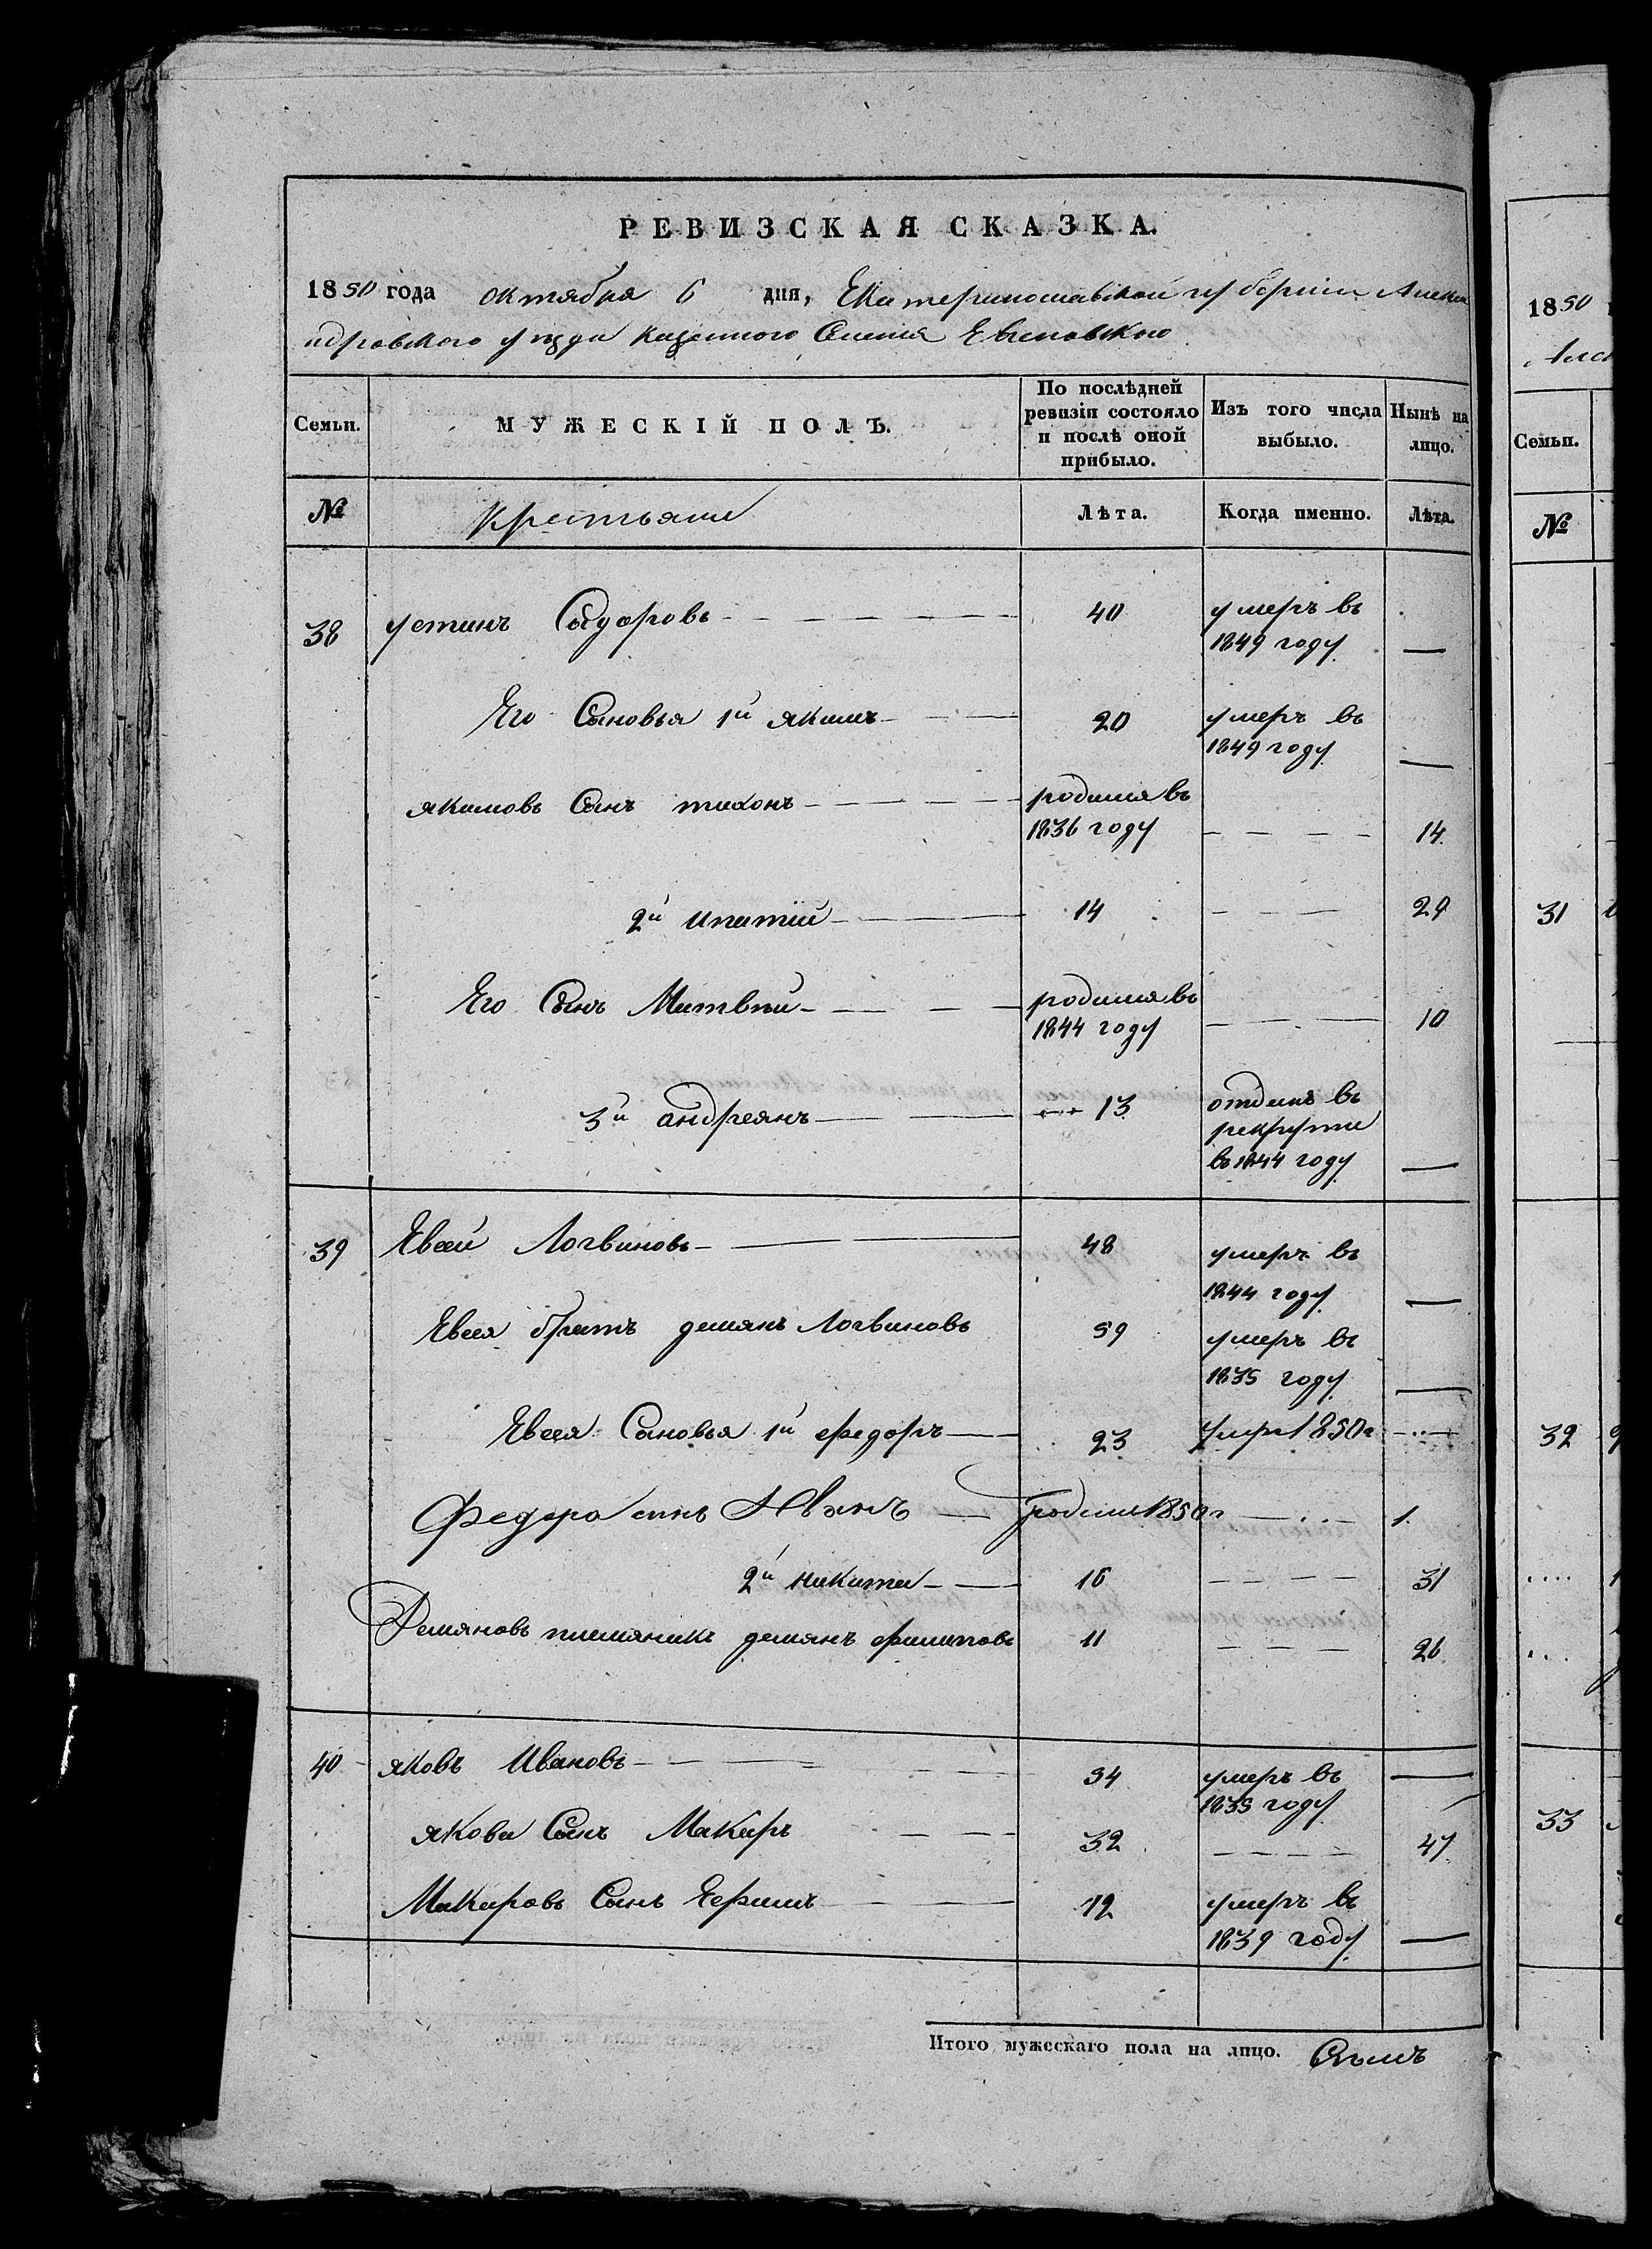 РЕВИЗСКАЯ СКАЗКА.
1850 года октября 6 дня, Екатеринославской губернии Алекса
ндровского уезда казенного Селения Евсеновкио
Семьи. МУЖЕСКІЙ ПОЛЪ. По послѣдней ревизіи состояло и послѣ оной прибыло. Изъ того числа выбыло. Нынѣ на лицо.
№ Крестьяне Лѣта. Когда именно. Лѣта.
38 устинъ Сидоровъ 40 умеръ въ
1849 году —
Его Сыновья 1й якимъ 20 умеръ въ
1849 году —
якимовъ Сынъ тихонъ родился въ
1836 году 14
2й ипатій 14 29
Его Сынъ Матвѣй родился въ
1844 году 10
3й андреянъ 13 отданъ въ
рекруты
въ 1844 году —
39 Евсей Логвиновъ 48 умеръ въ
1844 году —
Евсея братъ демянъ Логвиновъ 59 умеръ въ
1835 году —
Евсея Сыновья 1й федоръ 23 умеръ 1850г
Федора сынъ Иванъ родился 1850г 1.
2й никита 16 31
Демяновъ племяникъ демянъ филиповъ 11 26
40 яковъ Ивановъ 54 умеръ въ
1835 году —
якова Сынъ Макаръ 32 47
Макаровъ Сынъ Ефимъ 12 умеръ въ
1839 году —
Итого мужескаго пола на лицо. Сѣмъ
1850
Алек
Семьи.
№
31
32
33